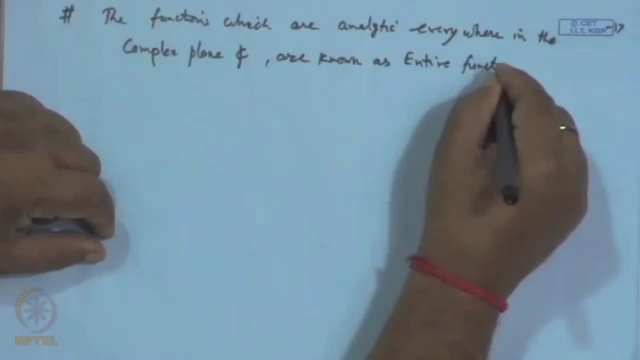 # The functions which are analytic every where in the
Complex plane ₵, are known as Entire funct
© CET
I.I.T. KGP
NPTEL